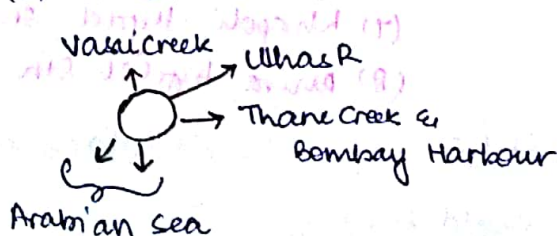 Vasai Creek
Ulhas R
Thane Creek &
Bombay Harbour
Arabian Sea